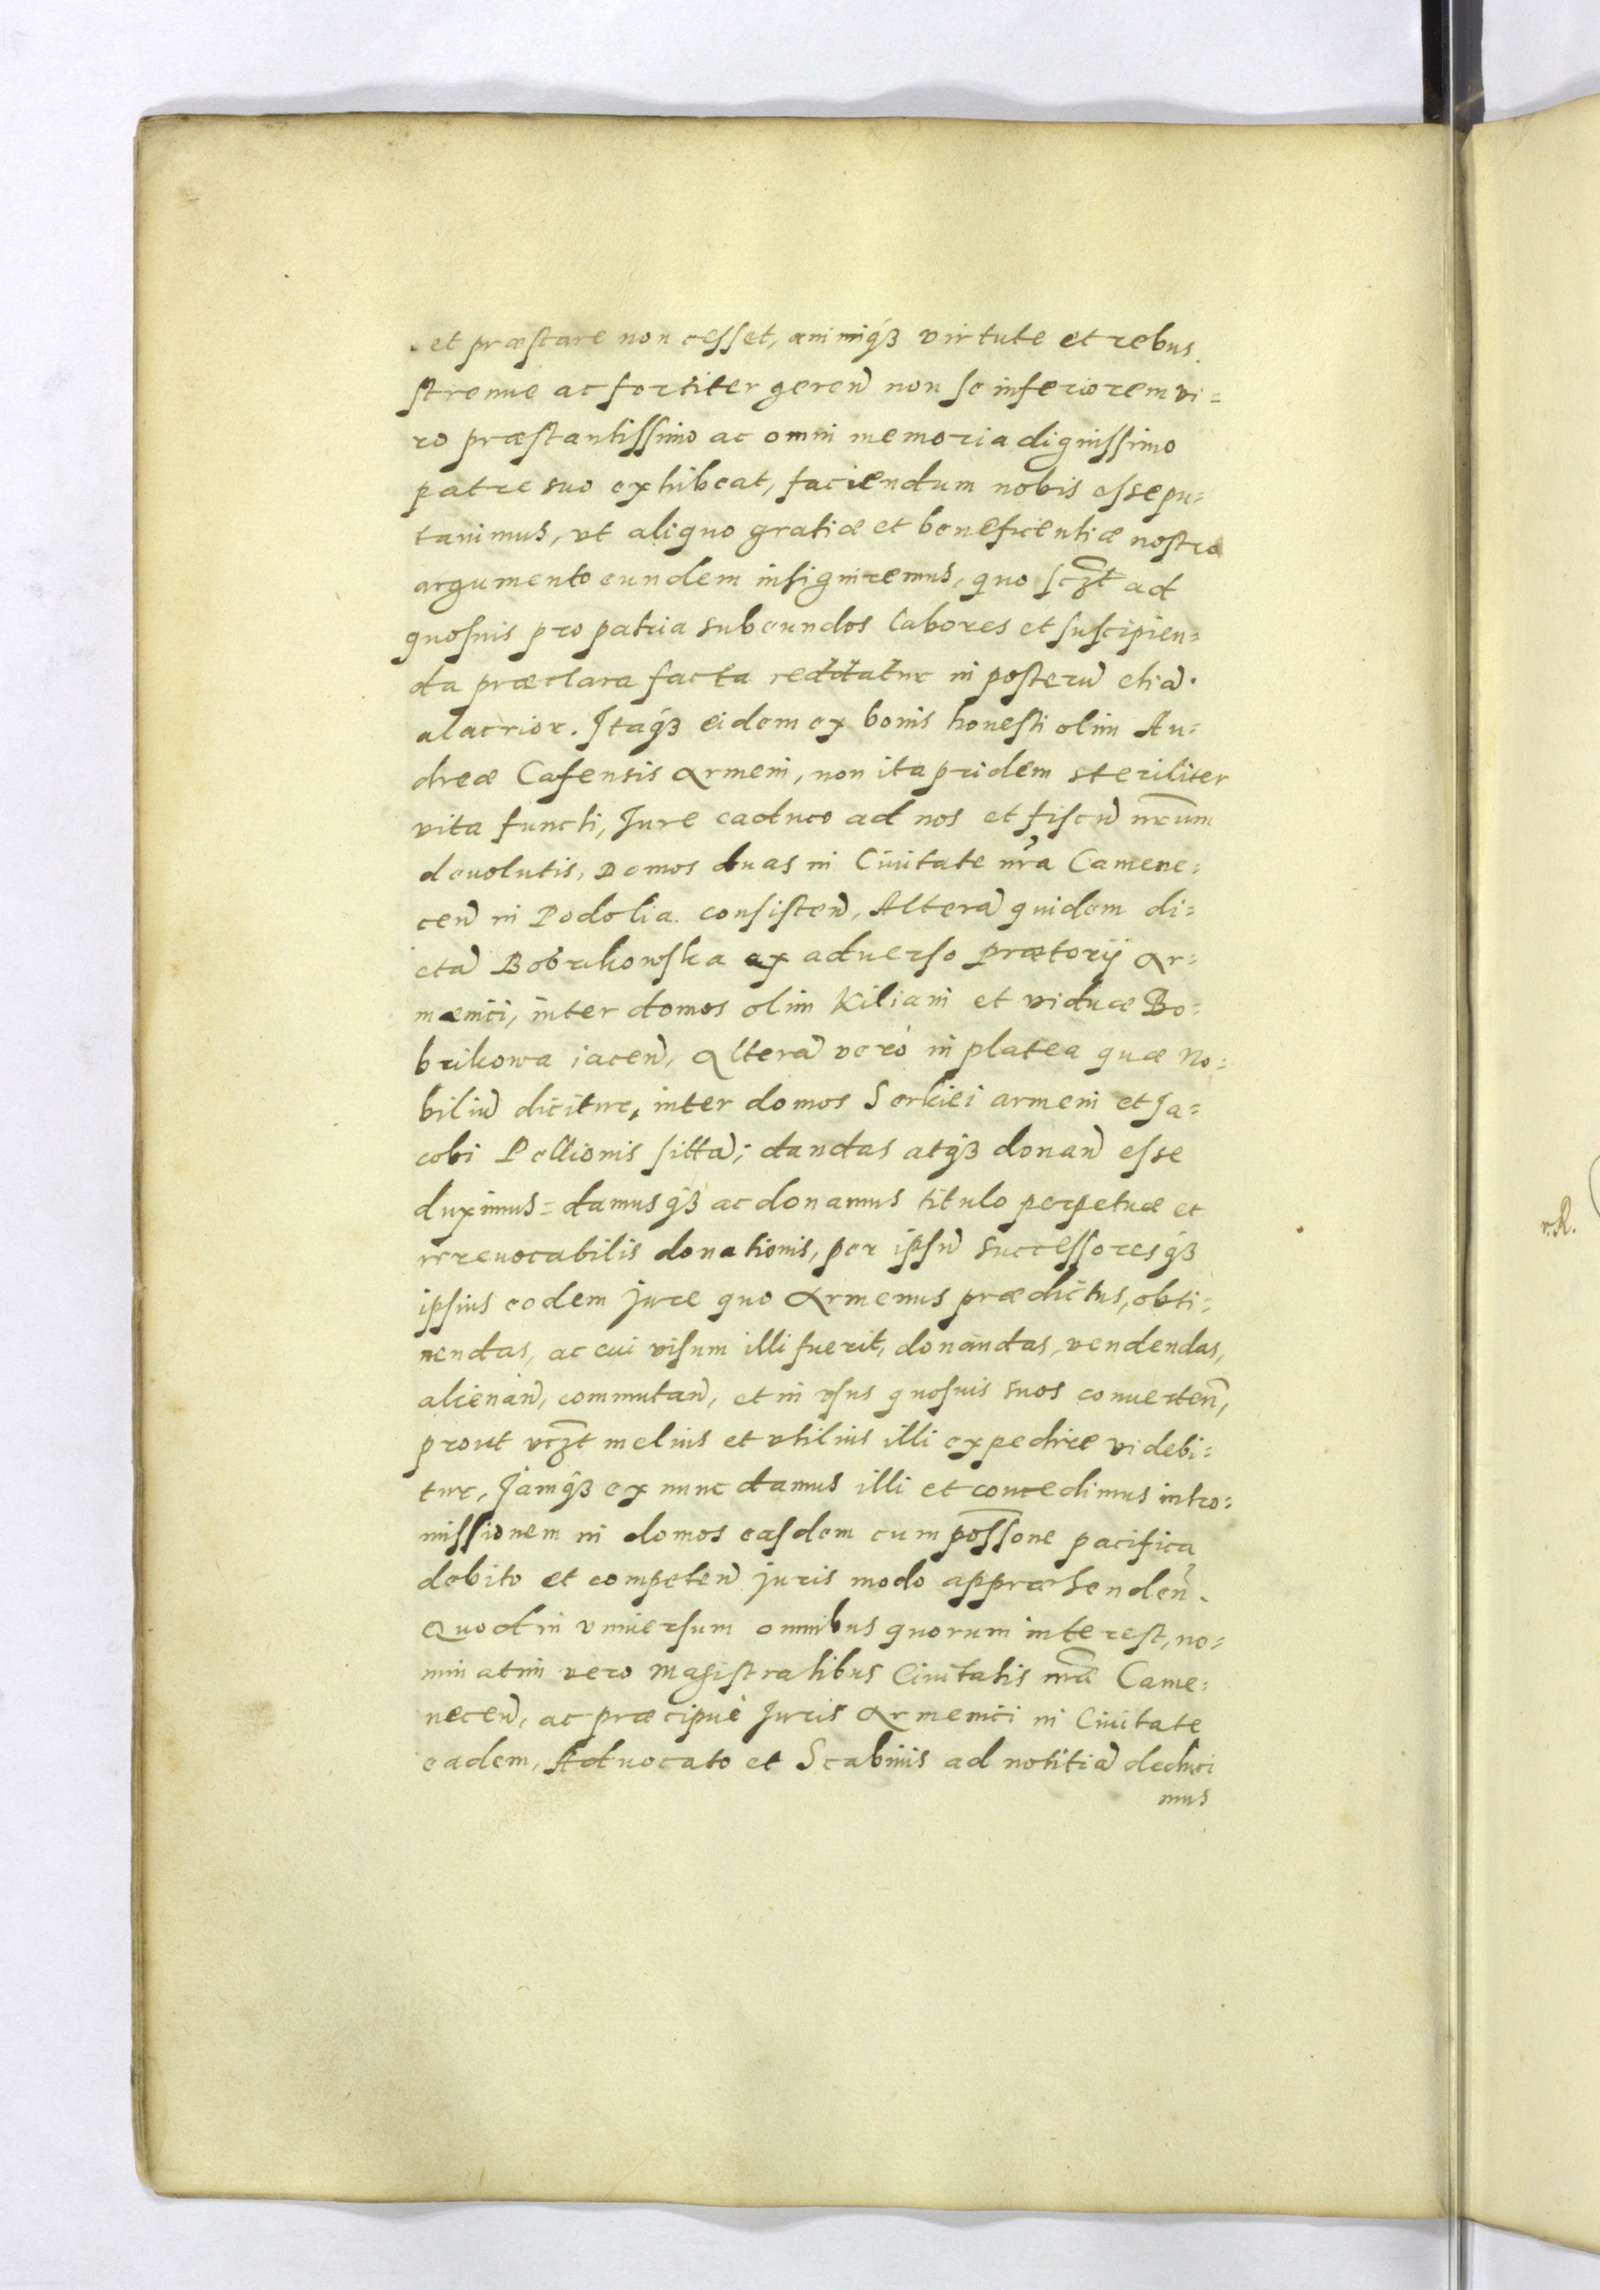 et præstare non cesset, animiqʒ virtute et rebus
strenue ac fortiter gereñ non se inferiorem vi=
ro præstantissimo ac omni memoria dignissimo
patre suo exhibeat, faciendum nobis esse pu=
tauimus, vt aliquo gratiæ et beneficentiæ nostræ
argumento eundem insigniremus, quo scʒt ad
quosuis pro patria subeundos labores et suscipien=
da præclara facta reddatur in posterũ etiã
alacrior. Itaqʒ eidem ex bonis honesti olim An=
dreæ Cafensis Armeni, non ita pridem steriliter
vita functi, Jure caduco ad nos et fiscũ nr̃um
deuolutis, Domos duas in Ciuitate nr̃a Camene=
ceñ in Podolia consisteñ, Alterã quidem di=
ctã Bobrikowska ex aduerso prætorij Ar=
mænici, inter domos olim Kiliani et viduæ Bo=
brikowa iaceñ, Alterã verò in platea quæ No=
biliũ dicitur, inter domos Serkiei armeni et Ja=
cobi Pellionis sittã; dandas atqʒ donañ esse
duximus= damusqʒ ac donamus titulo perpetuæ et
irreuocabilis donationis, per ipsũ successoresqʒ
ipsius eodem jure quo Armenus prædictus, obti=
nendas, ac cui visum illi fuerit, donandas, vendendas,
alienañ, commutañ, et in vsus quosuis suos conuerteñ,
prout vcʒt melius et vtilius illi expedire videbi=
tur, Jamqʒ ex nunc damus illi et concedimus intro=
missionem in domos easdem cum posßone pacifica
debito et competeñ juris modo appræhendeñ.
Quod in vniuersum omnibus quorum interest, no=
minatim vero Magistratibus Ciuitatis nr̃æ Came=
neceñ, ac præcipuè Juris Armenici in Ciuitate
eadem, Aduocato et Scabinis ad notitiã deduci
mus
r.R.